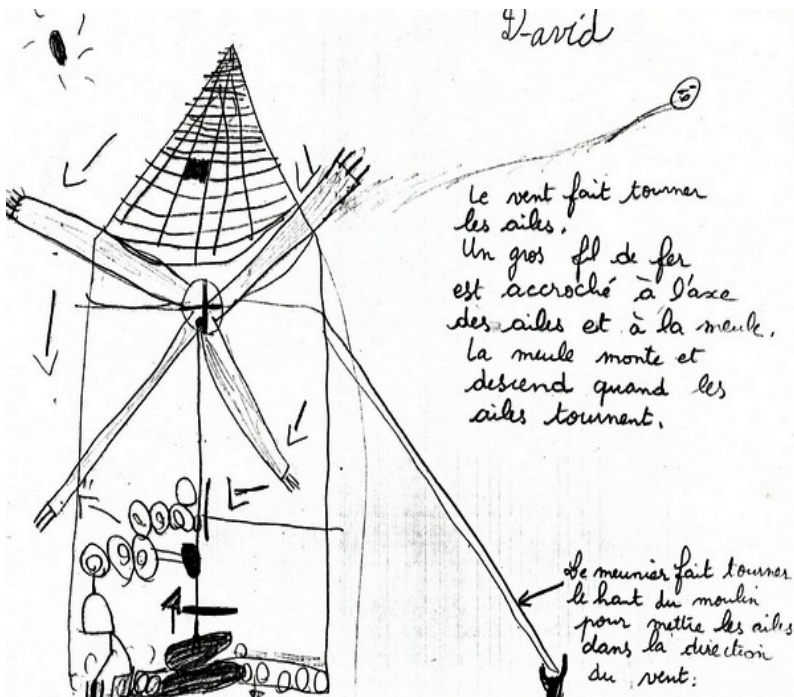 David
Le vent fait tourner
les ailes.
Un gros fil de fer
est accroché à l'axe
des ailes est à la meule.
La meule monte et
descend quand les
ailes tournent.
Le meunier fait tourner
le haut du moulin
pour mettre les ailes
dans la direction
du vent.